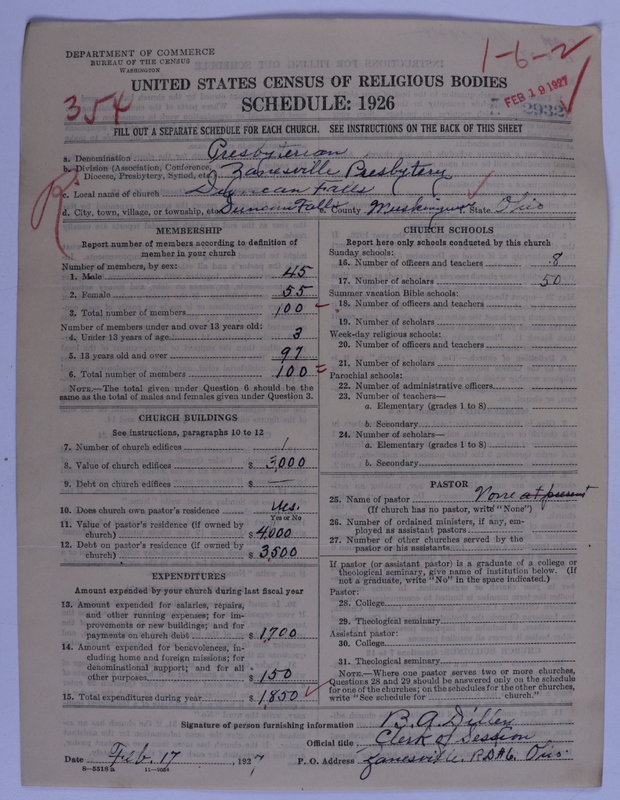 DEPARTMENT OF COMMERCE
BUREAU OF THE CENSUS
WASHINGTON
1-6-2
354
FEB 19 1927
UNITED STATES CENSUS OF RELIGIOUS BODIES
SCHEDULE: 1926
FILL OUT A SEPARATE SCHEDULE FOR EACH CHURCH. SEE INSTRUCTIONS ON THE BACK OF THIS SHEET
a. Denomination Presbyterian
b. Division (Association, Conference, Diocese, Presbytery, Synod, etc. Zanesville Presbytery
c. Local name of church Duncan Falls
d. City, town, village, or township, etc. Duncan Falls County Muskingum State Ohio
MEMBERSHIP
Report number of members according to definition of member in your church
Number of members, by sex:
1. Male 45
2. Female 55
3. Total number of members 100
Number of members under and over 13 years old:
4. Under 13 years of age 3
5. 13 years old and over 97
6. Total number of members 100
NOTE.—The total given under Question 6 should be the same as the total of males and females given under Question 3.
CHURCH BUILDINGS
See instructions, paragraphs 10 to 12
7. Number of church edifices 1
8. Value of church edifices $ 3,000
9. Debt on church edifices $ —
10. Does church own pastor's residence? Yes.
Yes or No
11. Value of pastor's residence (if owned by church) $ 4,000
12. Debt on pastor's residence (if owned by church) $ 3,500
EXPENDITURES
Amount expended by your church during last fiscal year
13. Amount expended for salaries, repairs, and other running expenses; for improvements or new buildings; and for payments on church debt $ 1700
14. Amount expended for benevolences, including home and foreign missions; for denominational support; and for all other purposes $ 150
15. Total expenditures during year $ 1,850
CHURCH SCHOOLS
Report here only schools conducted by this church
Sunday schools:
16. Number of officers and teachers 8
17. Number of scholars 50
Summer vacation Bible schools:
18. Number of officers and teachers
19. Number of scholars
Week-day religious schools:
20. Number of officers and teachers
21. Number of scholars
Parochial schools:
22. Number of administrative officers
23. Number of teachers—
a. Elementary (grades 1 to 8)
b. Secondary
24. Number of scholars—
a. Elementary (grades 1 to 8)
b. Secondary
PASTOR
25. Name of pastor None at present
(If church has no pastor, write "None")
26. Number of ordained ministers, if any, employed as assistant pastors
27. Number of other churches served by the pastor or his assistants
If pastor (or assistant pastor) is a graduate of a college or theological seminary, give name of institution below. (If not a graduate, write "No" in the space indicated.)
Pastor:
28. College
29. Theological seminary
Assistant pastor:
30. College
31. Theological seminary
NOTE.—Where one pastor serves two or more churches, Questions 28 and 29 should be answered only on the schedule for one of the churches; on the schedules for the other churches, write "See schedule for church."
Signature of person furnishing information B. A. Dilley
Official title Clerk of Session
Date Feb. 17, 1927 P. O. Address Zanesville, R.D.#6. Ohio.
8-5516a 11-9024